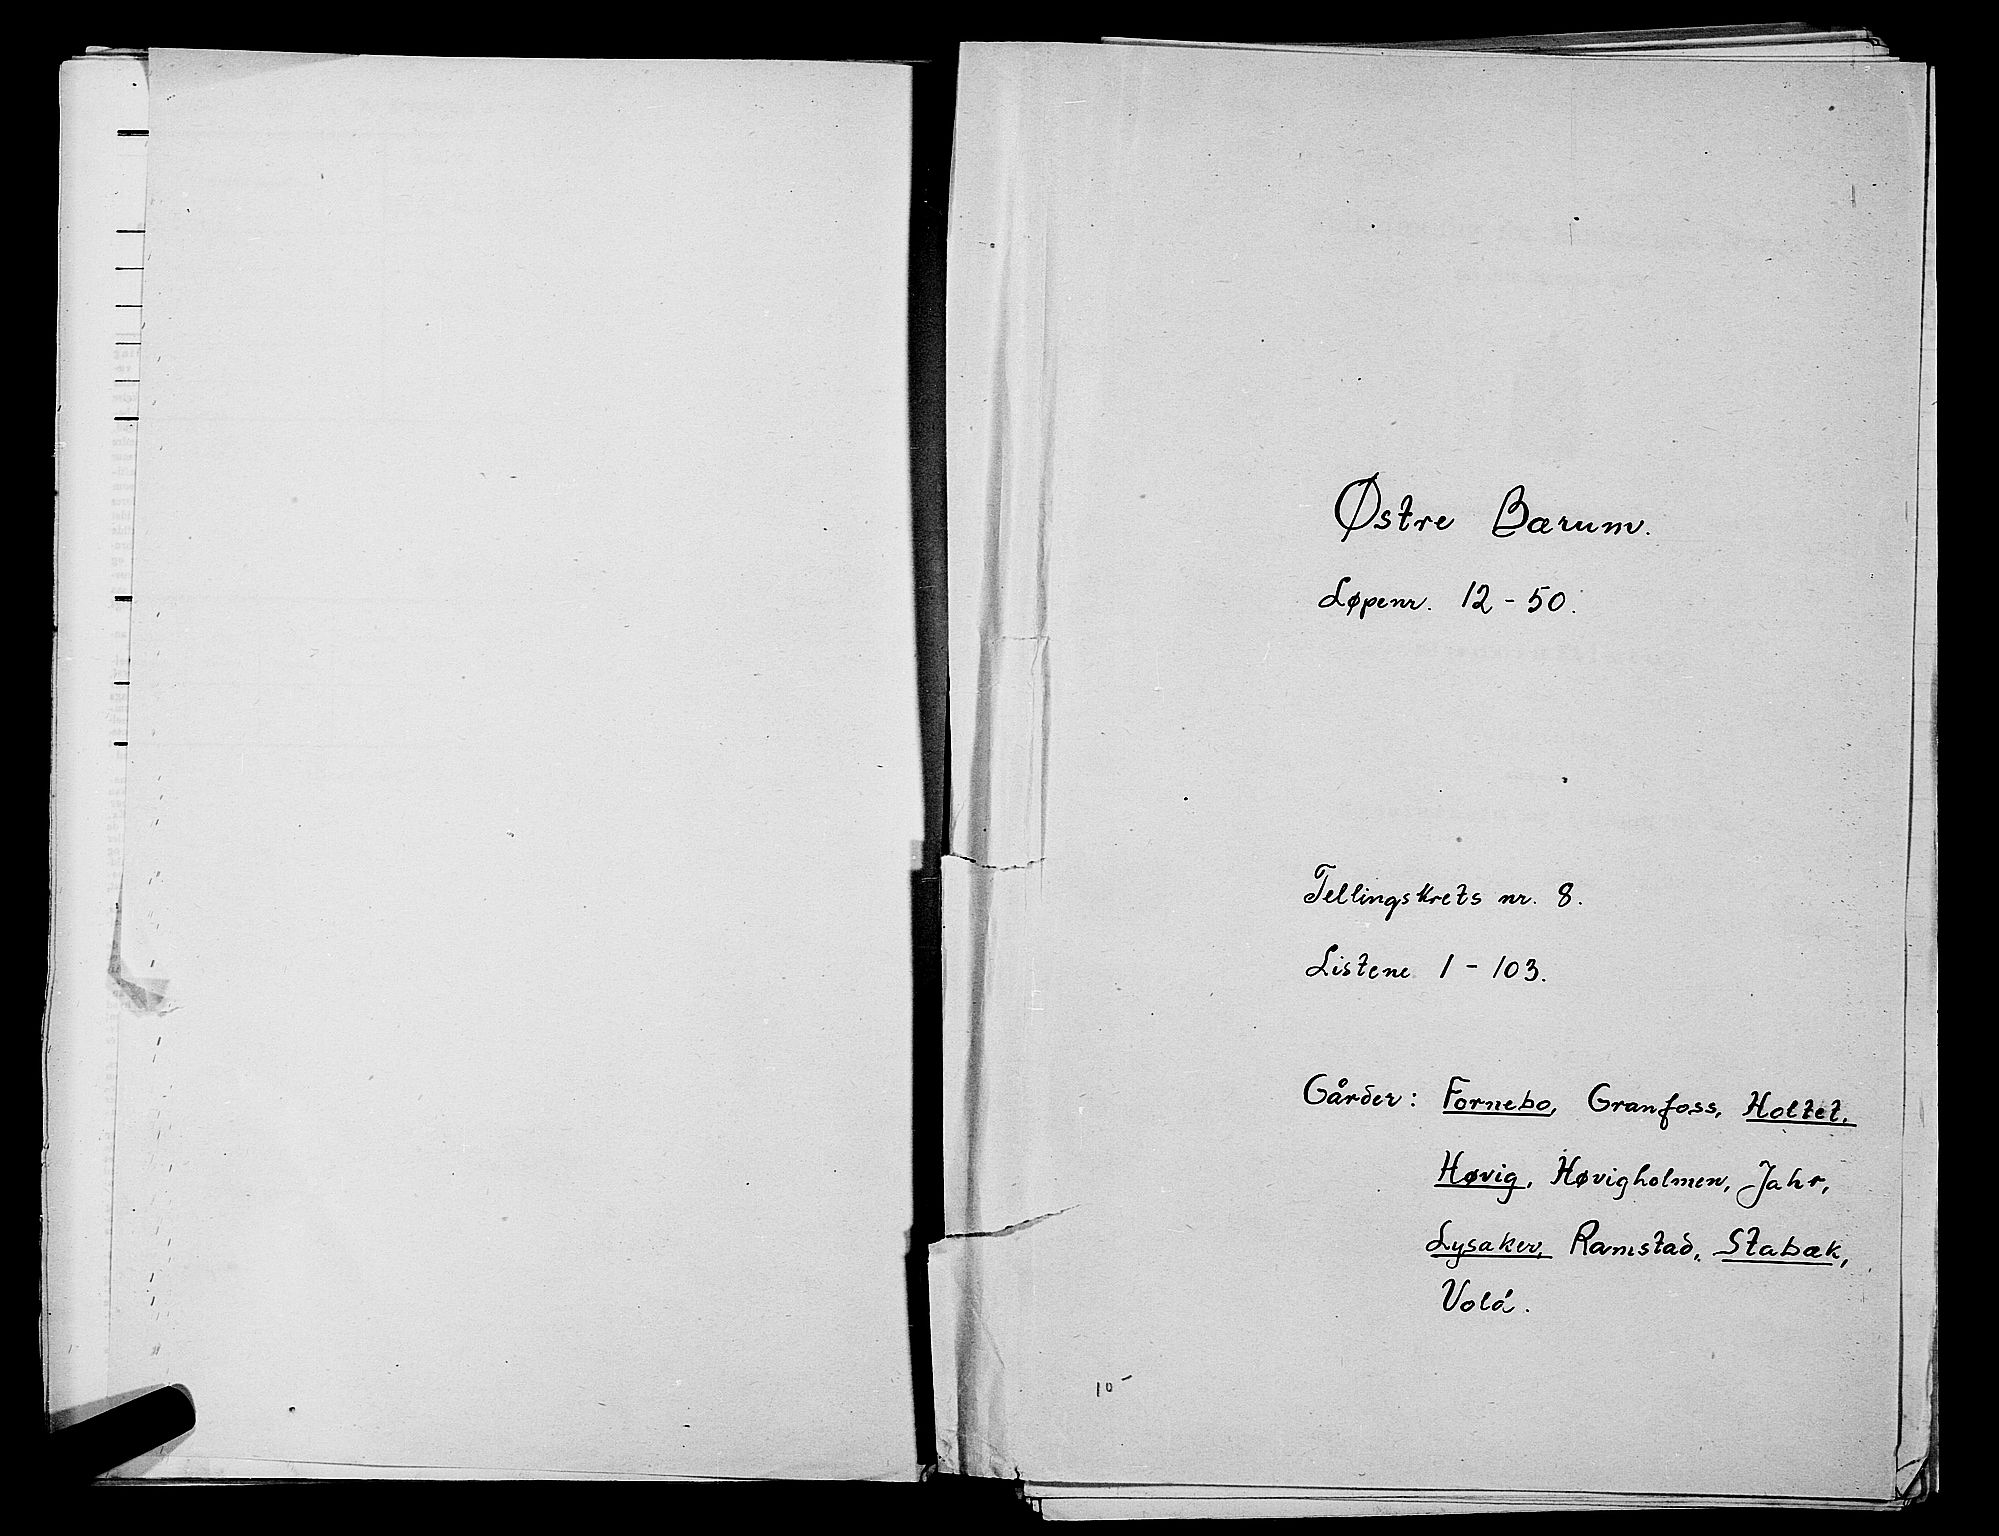 Østre Bærum.
Løpenr. 12 - 50.
Tellingskrets nr. 8.
Listene 1 - 103.
Gårder: Fornebo, Granfoss, Holtet,
Høvig, Høvigholmen, Jahr,
Lysaker, Ramstad, Stabæk,
Vold.
10-